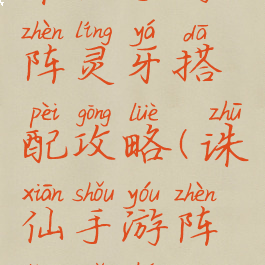 zhèn líng yá dā
阵灵牙搭
pèi gōng lüè zhū
配攻略(诛
xiān shǒu yóu zhèn
仙手游阵